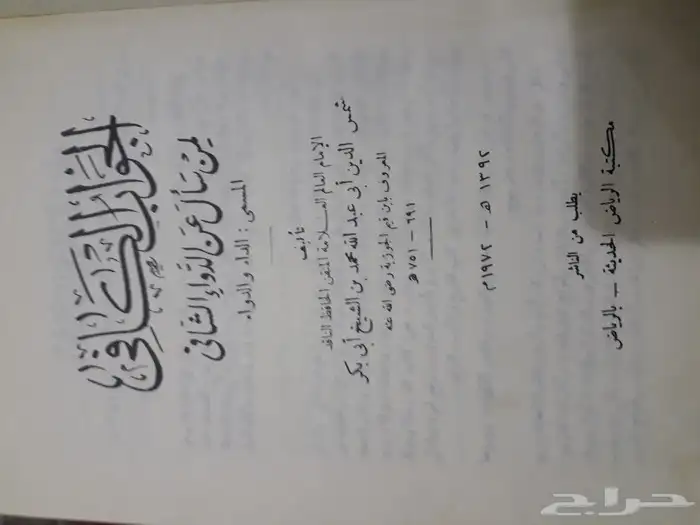 الجواب الكافي
لمن سأل عن الدواء الشافي
المسمى : الداء والدواء
تأليف
الإمام العالم العلامة المتقن الحافظ الناقد
شمس الدين أبى عبد الله محمد بن الشيخ أبى بكر
المعروف بابن قيم الجوزية رضى الله عنه
٦٩١ - ٧٥١ هـ
١٣٩٢ هـ - ١٩٧٢ م
يطلب من الناشر
مكتبة الرياض الحديثة - بالرياض
حراج